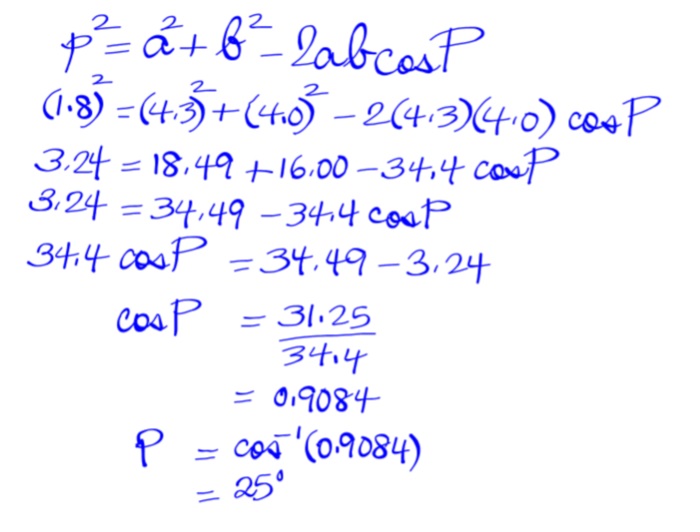 p² = a² + b² - 2ab cos P
(1.8)² = (4.3)² + (4.0)² - 2(4.3)(4.0) cos P
3.24 = 18.49 + 16.00 - 34.4 cos P
3.24 = 34.49 - 34.4 cos P
34.4 cos P = 34.49 - 3.24
cos P = 31.25
34.4
= 0.9084
P = cos⁻¹(0.9084)
= 25°